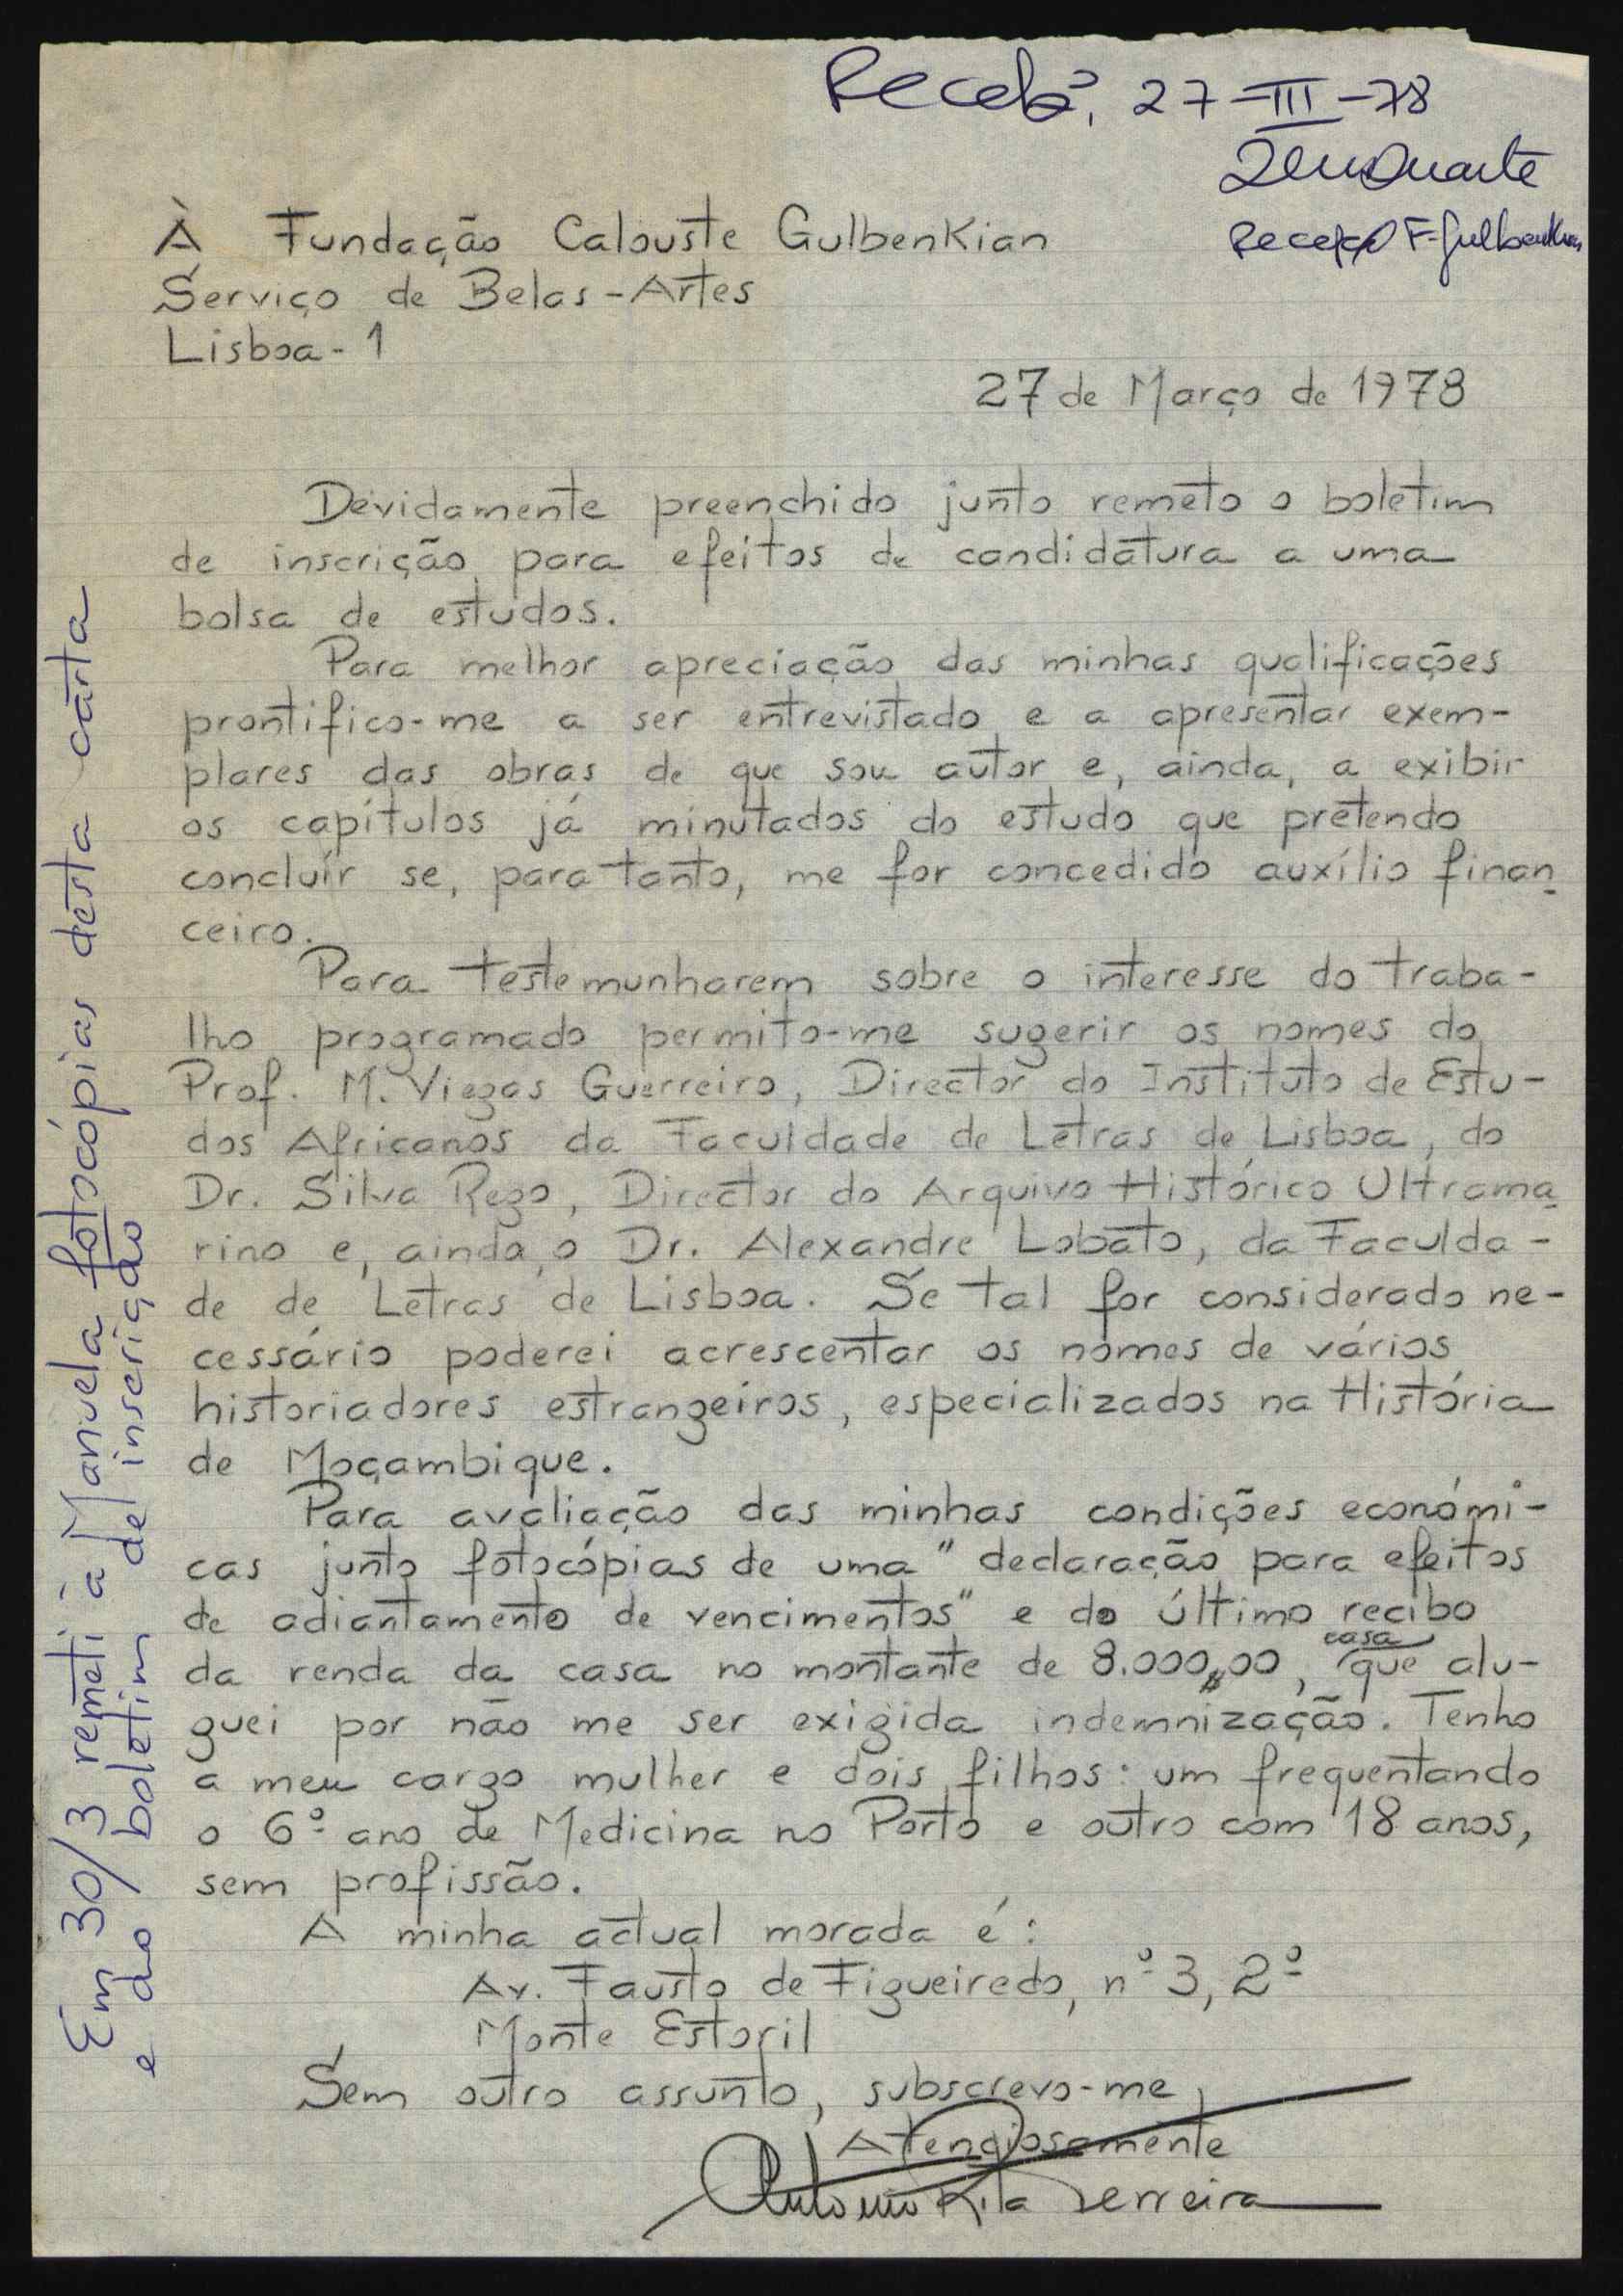 Recebi, 27-III-78
Duarte
Recepção F. Gulbenkian
À Fundação Calouste Gulbenkian
Serviço de Belas-Artes
Lisboa-1
27 de Março de 1978
Devidamente preenchido junto remeto o boletim
de inscrição para efeitos de candidatura a uma
bolsa de estudos.
Para melhor apreciação das minhas qualificações
prontifico-me a ser entrevistado e a apresentar exem-
plares das obras de que sou autor e, ainda, a exibir
os capítulos já minutados do estudo que pretendo
concluír se, para tanto, me for concedido auxílio finan-
ceiro.
Para testemunharem sobre o interesse do traba-
lho programado permito-me sugerir os nomes do
Prof. M. Viegas Guerreiro, Director do Instituto de Estu-
dos Africanos da Faculdade de Letras de Lisboa, do
Dr. Silva Rego, Director do Arquivo Histórico Ultrama-
rino e, ainda, o Dr. Alexandre Lobato, da Faculda-
de de Letras de Lisboa. Se tal for considerado ne-
cessário poderei acrescentar os nomes de vários
historiadores estrangeiros, especializados na História
de Moçambique.
Para avaliação das minhas condições económi-
cas junto fotocópias de uma "declaração para efeitos
de adiantamento de vencimentos" e do último recibo
da renda da casa no montante de 8.000$00, casa que alu-
guei por não me ser exigida indemnização. Tenho
a meu cargo mulher e dois filhos: um frequentando
o 6º ano de Medicina no Porto e outro com 18 anos,
sem profissão.
A minha actual morada é:
Av. Fausto de Figueiredo, nº 3, 2º
Monte Estoril
Sem outro assunto, subscrevo-me
Atenciosamente
António Rita Ferreira
Em 30/3 remeti à Manuela fotocópias desta carta
e do boletim de inscrição